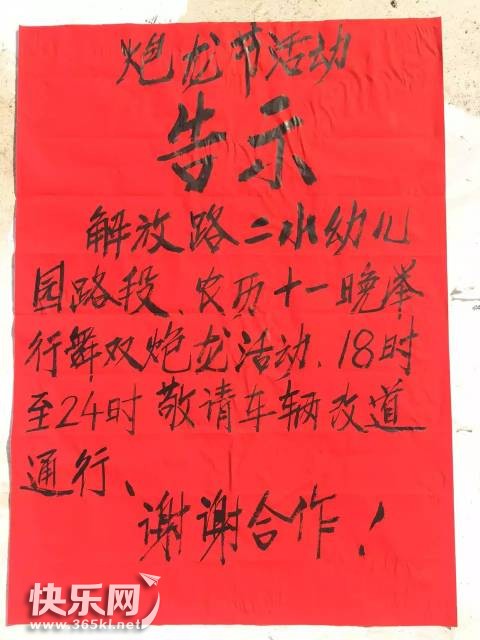 炮龙节活动
告示
解放路二水幼儿
园路段、农历十一晚举
行舞双炮龙活动、18时
至24时敬请车辆改道
通行、
谢谢合作!
快乐网
www.365kl.net